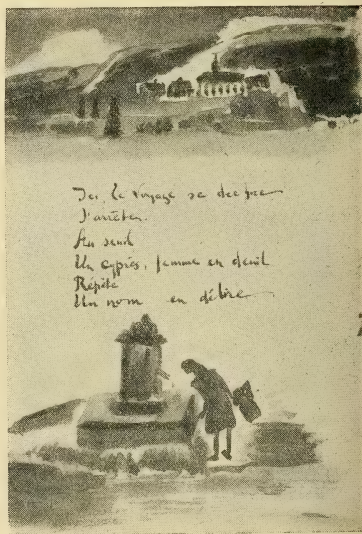 Ici, le voyage se
J'arrête.
Au seuil
Un cyprès, femme en deuil
Répète
Un nom en délire